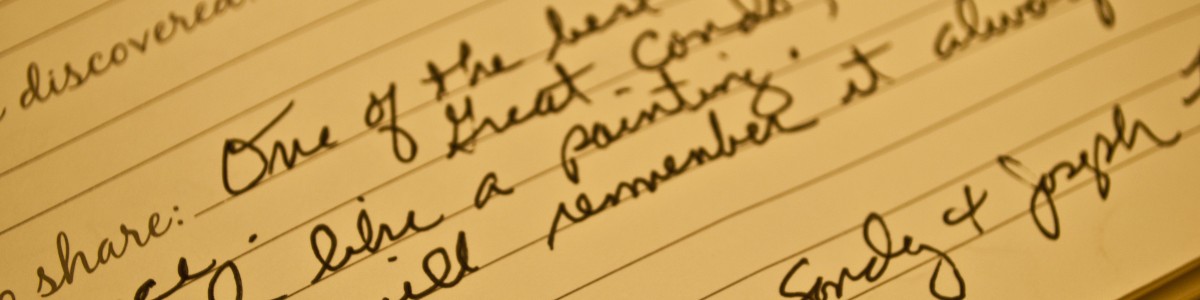 discovered
share: One of the best
Great Condo,
like a painting.
will remember it always
Sandy & Joseph